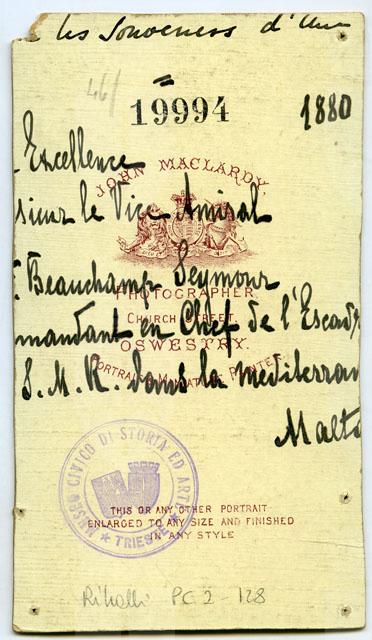 les Souvenirs d'un
46/
19994 1880
Excellence
JOHN MACLARDY
sieur le Vice Amiral
Beauchamp Seymour
PHOTOGRAPHER
CHURCH STREET
mandant en Chef de l'Escadr
OSWESTRY.
PORTRAIT & MINIATURE PAINTER.
S. M. R. dans la mediterran
Malte
MUSEO CIVICO DI STORIA ED ARTE
TRIESTE
THIS OR ANY OTHER PORTRAIT
ENLARGED TO ANY SIZE AND FINISHED
IN ANY STYLE
PC 2 - 128